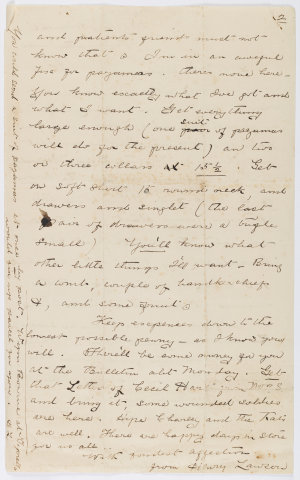 2
and patients friend must not
know that I'm in an awful
fix for pyjamas. theres none here –
You know exactly what I've got and
what I want. Get everything
large enough (one suit of pyjamas
will do for the present) an two
or three collars 15½. Get
on soft shirt 16 round neck, and
drawers and singlet (the last
pair of drawers were a trifle
small) You'll know what
other little things I'll want – Bring
a comb, couple of handkerchiefs
&, and some
Keep expenses down to the
lowest possible penny – as I know you
will. There'll be some money for you
at the Bulletin abt Monday. Get
that
and bring it, some wounded soldiers
are here. and the
are well. There are happy days in store
for us all
With fondest affection
from Henry Lawson
You could send a suit of pyjamas at once by post,